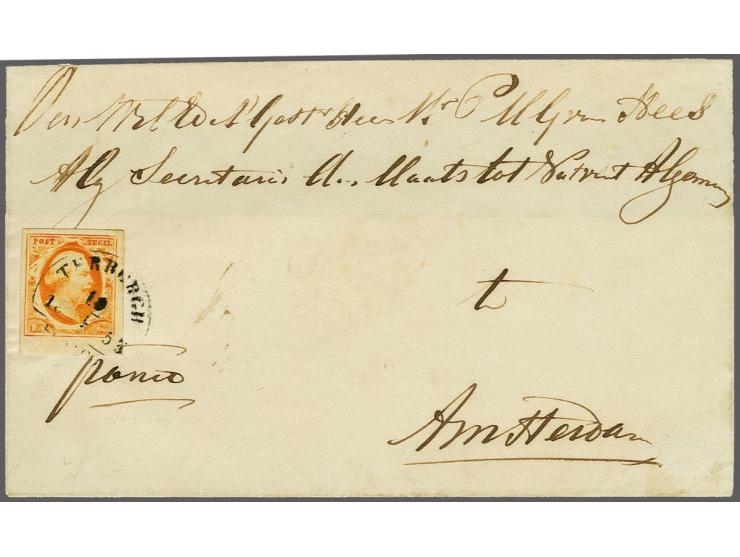 Den Wel Ed. Gestr. Heer Mr. P M G van Hees
Alg Secretaris der Maats tot Nut van t Algemeen
POST ZEGEL
TERBORGH
10
53
t
franco
Amsterdam